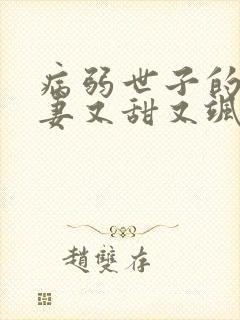 病弱世子的
妻又甜又飒
趙雙存